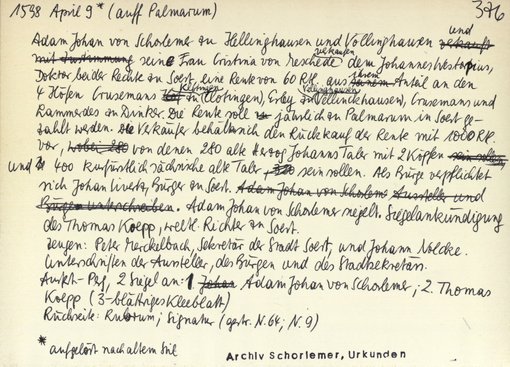 1598 April 9* (auff Palmarum) 376
Adam Johan von Schorlemer zu Hellinghausen und Völlinghausen und verkauft
mit Zustimmung seine Frau Cristina von Meschede verkaufen dem Johannes Westorpius,
Doktor beider Rechte zu Soest, eine Rente von 60 Rtl. aus ihrem Anteil an den
4 Höfen Crusemans zu Klottingen (Clotingen), Erley zu Völlinghausen (Vellinckhausen), Crusemans und
Rammerdes zu Dinker. Die Rente soll jährlich zu Palmarum in Soest ge-
zahlt werden. Die Verkäufer behalten sich den Rückkauf der Rente mit 1000 Rtl.
vor, wobei 280 von denen 280 alte Herzog Johanns Taler mit 2 Köpfen sein sollen
und 400 kurfürstlich sächsische alte Taler, sein sollen. Als Bürge verpflichtet
sich Johan Bürger zu Soest. Adam Johan von Schorlem Aussteller und
Bürgen unterschreiben. Adam Johan von Schorlemer siegelt. Siegelankündigung
des Thomas Koepp, weltl. Richter zu Soest.
Zeugen: Peter Merckelbach, Sekretär der Stadt Soest, und Johann Noldeke.
Unterschriften der Aussteller, des Bürgen und des Stadtsekretärs.
Ausf. - Perg., 2 Siegel an: 1. Johan Adam Johan von Schorlemer; 2. Thomas
Koepp (3-blättriges Kleeblatt)
Rückseite: Rubrum; Signatur (gestr. N. 64; N. 9)
* aufgelöst nach altem Stil
Archiv Schorlemer, Urkunden